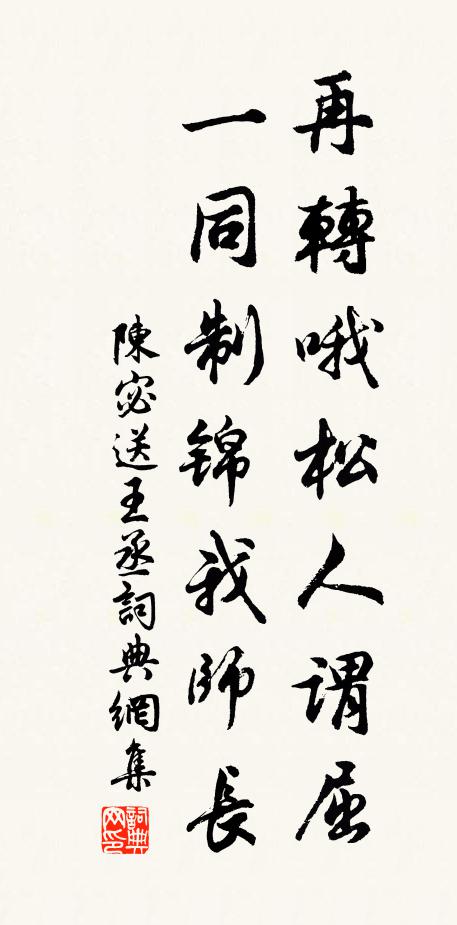 再轉哦松人謂屈
一同制錦我師長
陳宓送王丞詞典網集
詞典網印